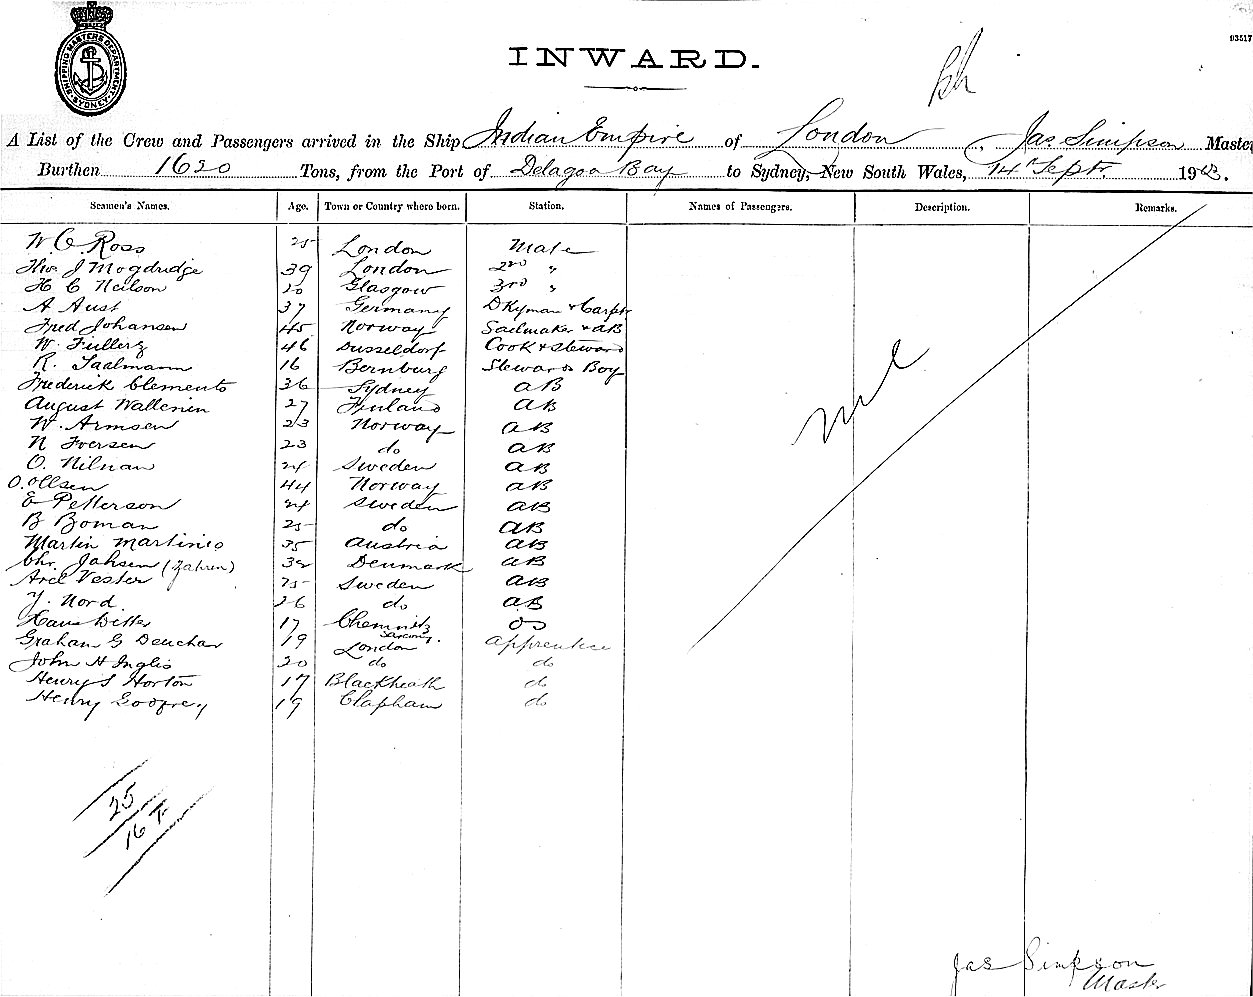 SHIPPING MASTERS DEPARTMENT. SYDNEY
93517
INWARD.
A List of the Crew and Passengers arrived in the Ship Indian Empire of London, Jas. Simpson Master
Burthen 1620 Tons, from the Port of Delagoa Bay to Sydney, New South Wales, 14 Septr. 1903.
Seamen's Names. Age. Town or Country where born. Station. Names of Passengers. Description. Remarks.
W. C. Ross 25 London Mate
Thos J Mogdridge 39 London 2nd "
H C Neilson 20 Glasgow 3rd "
A Aust 37 Germany DKyman & Carptr
Fred Johansen 45 Norway Sailmaker & AB
W. Fullerz 46 Dusseldorf Cook & Steward
R. Taalmann 16 Bernburg Stewards Boy
Frederick Clements 36 Sydney AB
August Wallenin 27 Finland AB
W. Armsen 23 Norway AB
N Foersen 23 do AB
O. Nilnan 24 Sweden AB
O. Ollsen 44 Norway AB
E Petterson 24 Sweden AB
B Boman 25 do AB
Martin Martinio 35 Austria AB
Chr. Jahsen (Jahren) 32 Denmark AB
Axel Vester 25 Sweden AB
Y. Nord 26 do AB
Hans Ditter 17 Chemnitz Saxony. OS
Graham G Deuchar 19 London apprentice
John H Inglis 20 do do
Henry S Horton 17 Blackheath do
Henry Godfrey 19 Clapham do
nil
25
16 F.
Jas Simpson
Master